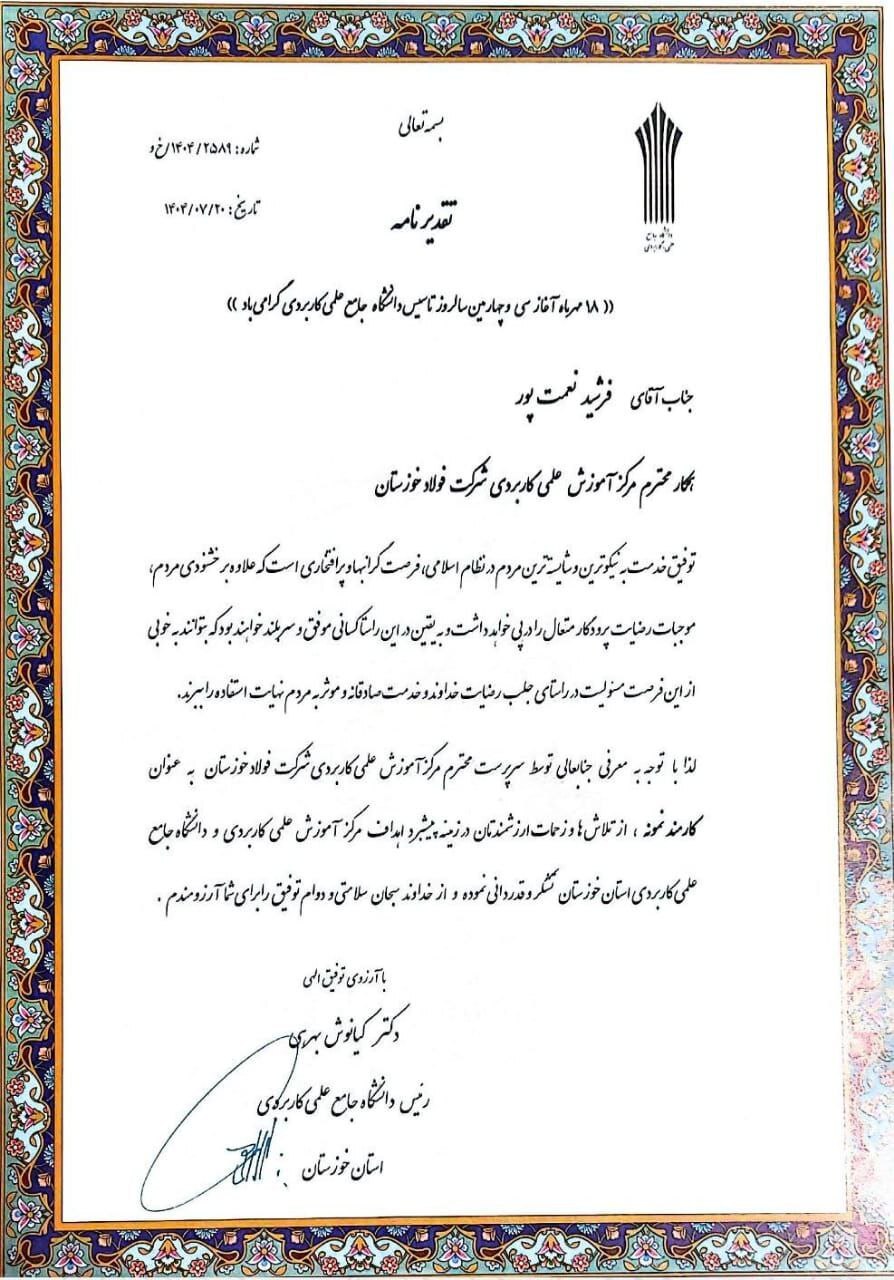 بسمه تعالی
شماره: ۱۴۰۴/۲۵۸۹/خ و
تاریخ: ۱۴۰۴/۰۷/۲۰
دانشگاه جامع
علمی کاربردی
تقدیر نامه
(( ۱۸ مهرماه آغاز سی و چهارمین سالروز تاسیس دانشگاه جامع علمی کاربردی گرامی باد ))
جناب آقای فرشید نعمت پور
همکار محترم مرکز آموزش علمی کاربردی شرکت فولاد خوزستان
توفیق خدمت به نیکوترین و شایسته ترین مردم در نظام اسلامی، فرصت گرانبها و پرافتخاری است که علاوه بر خشنودی مردم،
موجبات رضایت پروردگار متعال را در پی خواهد داشت و به یقین در این راستا کسانی موفق و سربلند خواهند بود که بتوانند به خوبی
از این فرصت مسئولیت در راستای جلب رضایت خداوند و خدمت صادقانه و موثر به مردم نهایت استفاده را ببرند.
لذا با توجه به معرفی جنابعالی توسط سرپرست محترم مرکز آموزش علمی کاربردی شرکت فولاد خوزستان به عنوان
کارمند نمونه ، از تلاش ها و زحمات ارزشمندتان در زمینه پیشبرد اهداف مرکز آموزش علمی کاربردی و دانشگاه جامع
علمی کاربردی استان خوزستان تشکر و قدردانی نموده و از خداوند سبحان سلامتی و دوام توفیق را برای شما آرزومندم .
با آرزوی توفیق الهی
دکتر کیانوش بهری
رئیس دانشگاه جامع علمی کاربردی
استان خوزستان